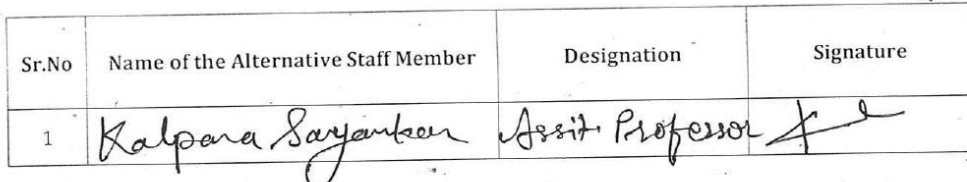 Sr.No Name of the Alternative Staff Member Designation Signature
1 Kalpana Sayankar Assit. Professor